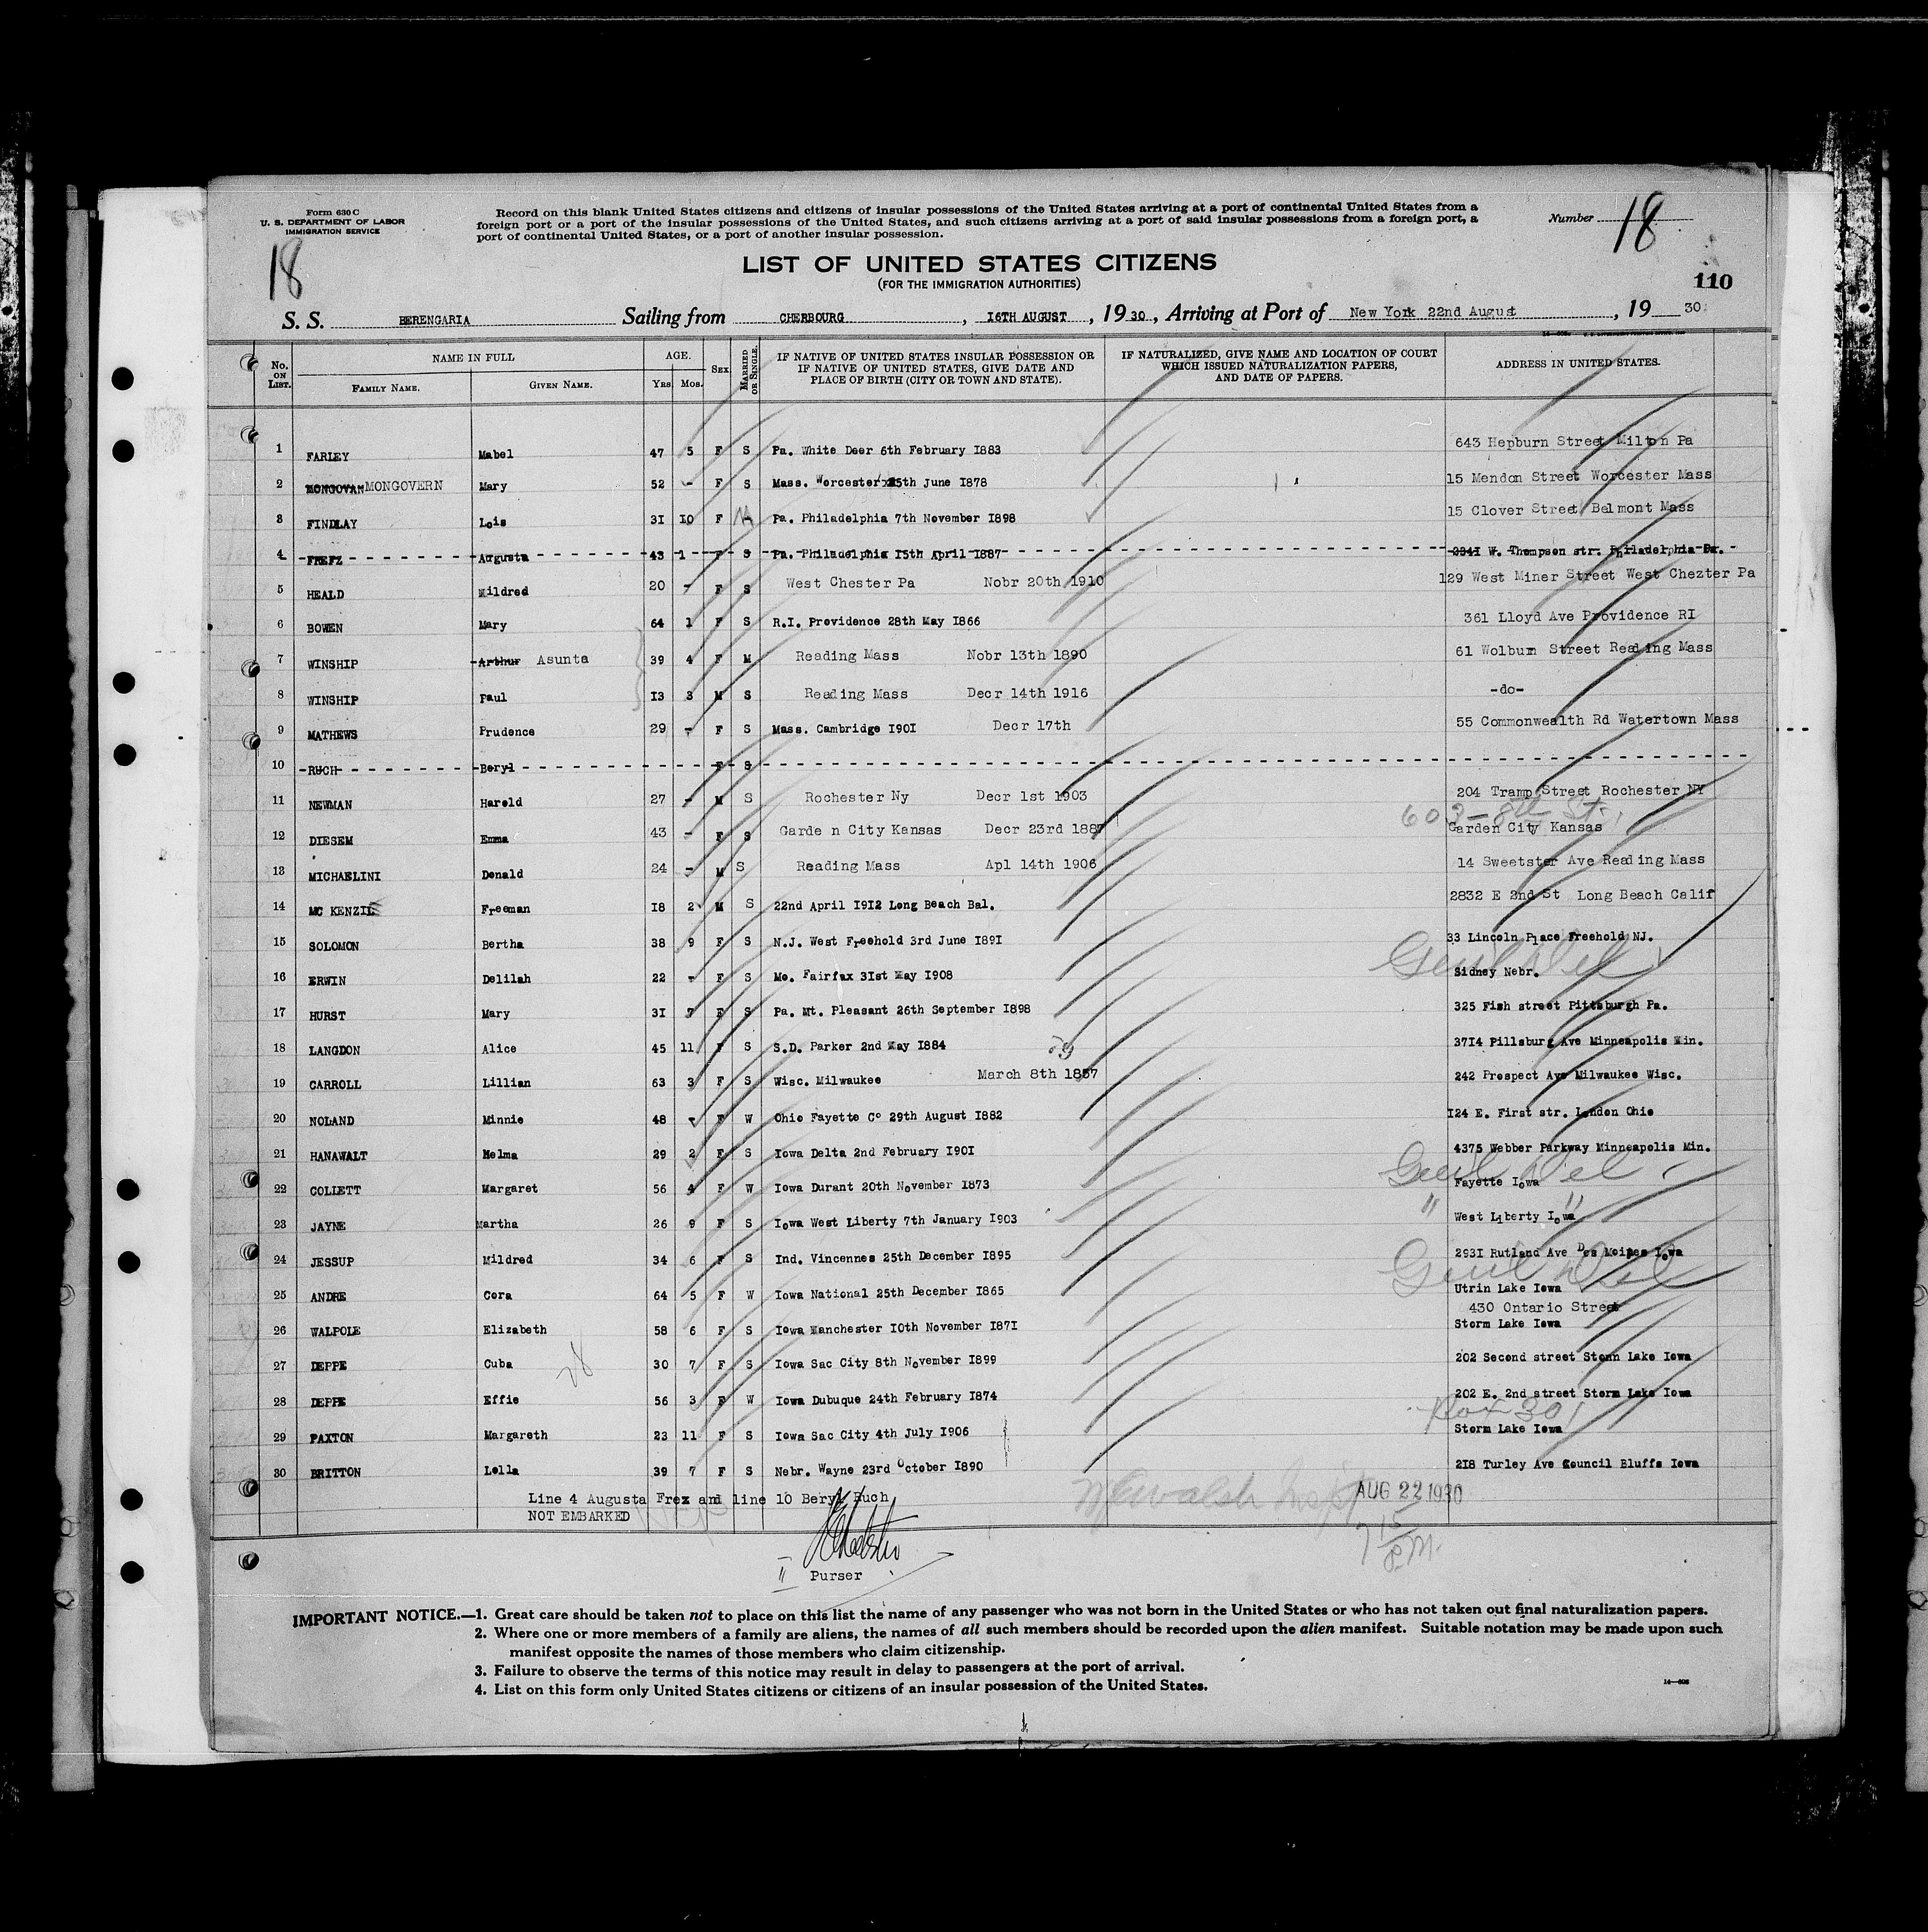 Form 630 C
U. S. DEPARTMENT OF LABOR
IMMIGRATION SERVICE
18
Record on this blank United States citizens and citizens of insular possessions of the United States arriving at a port of continental United States from a
foreign port or a port of the insular possessions of the United States, and such citizens arriving at a port of said insular possessions from a foreign port, a
port of continental United States, or a port of another insular possession.
Number 18
LIST OF UNITED STATES CITIZENS
(FOR THE IMMIGRATION AUTHORITIES)
110
S. S. BERENGARIA Sailing from CHERBOURG, I6TH AUGUST, 1930, Arriving at Port of New York 22nd August, 19 30
No. ON LIST. NAME IN FULL FAMILY NAME. GIVEN NAME. AGE. Yrs. Mos. SEX MARRIED OR SINGLE. IF NATIVE OF UNITED STATES INSULAR POSSESSION OR IF NATIVE OF UNITED STATES, GIVE DATE AND PLACE OF BIRTH (CITY OR TOWN AND STATE). IF NATURALIZED, GIVE NAME AND LOCATION OF COURT WHICH ISSUED NATURALIZATION PAPERS, AND DATE OF PAPERS. ADDRESS IN UNITED STATES.
1 FARLEY Mabel 47 5 F S Pa. White Deer 6th February I883 643 Hepburn Street Milton Pa
2 MONGOVAN MONGOVERN Mary 52 - F S Mass. Worcester 25th June I878 15 Mendon Street Worcester Mass
3 FINDLAY Lois 3I I0 F M Pa. Philadelphia 7th November I898 15 Clover Street Belmont Mass
4 FREFZ Augusta 43 1 F S Pa. Philadelphia I5th April I887 294I W. Thompson str. Philadelphia Pa.
5 HEALD Mildred 20 - F S West Chester Pa Nobr 20th 1910 129 West Miner Street West Chezter Pa
6 BOWEN Mary 64 1 F S R.I. Providence 28th May I866 361 Lloyd Ave Providence RI
7 WINSHIP Arthur Asunta 39 4 F M Reading Mass Nobr 13th 1890 61 Wolburn Street Reading Mass
8 WINSHIP Paul I3 3 M S Reading Mass Decr 14th 1916 -do-
9 MATHEWS Prudence 29 - F S Mass. Cambridge I90I Decr 17th 55 Commonwealth Rd Watertown Mass
10 RUCH Beryl F S
11 NEWMAN Harold 27 - M S Rochester Ny Decr 1st 1903 204 Tramp Street Rochester NY
603 - 8th St.
12 DIESEM Emma 43 - F S Garde n City Kansas Decr 23rd 1887 Garden City Kansas
13 MICHAELINI Donald 24 - M S Reading Mass Apl 14th 1906 14 Sweetster Ave Reading Mass
14 MC KENZIE Freeman I8 2 M S 22nd April I9I2 Long Beach Bal. 2832 E 2nd St Long Beach Calif
15 SOLOMON Bertha 38 9 F S N.J. West Freehold 3rd June I89I 33 Lincoln Place Freehold NJ.
Genl Del
16 ERWIN Delilah 22 - F S Mo. Fairfax 3Ist May I908 Sidney Nebr.
17 HURST Mary 3I 7 F S Pa. Mt. Pleasant 26th September I898 325 Fish street Pittsburgh Pa.
18 LANGDON Alice 45 11 F S S.D. Parker 2nd May I884 37I4 Pillsburg Ave Minneapolis Min.
19 CARROLL Lillian 63 3 F S Wisc. Milwaukee March 8th 1857 242 Prospect Ave Milwaukee Wisc.
20 NOLAND Minnie 48 - F W Ohio Fayette Co 29th August I882 I24 E. First str. London Ohio
21 HANAWALT Helma 29 2 F S Iowa Delta 2nd February I90I 4375 Webber Parkway Minneapolis Min.
Genl Del
22 COLLETT Margaret 56 4 F W Iowa Durant 20th November I873 Fayette Iowa
" "
23 JAYNE Martha 26 9 F S Iowa West Liberty 7th January I903 West Liberty Iowa
24 JESSUP Mildred 34 6 F S Ind. Vincennes 25th December I895 293I Rutland Ave Des Moines Iowa
Genl Del
25 ANDRE Cora 64 5 F W Iowa National 25th December I865 Utrin Lake Iowa
430 Ontario Street
26 WALPOLE Elizabeth 58 6 F S Iowa Manchester I0th November I87I Storm Lake Iowa
27 DEPPE Cuba 30 7 F S Iowa Sac City 8th November I899 202 Second street Stonn Lake Iowa
28 DEPPE Effie 56 3 F W Iowa Dubuque 24th February I874 202 E. 2nd street Storm Lake Iowa
Box 301
29 PAXTON Margareth 23 11 F S Iowa Sac City 4th July I906 Storm Lake Iowa
30 BRITTON Lella 39 7 F S Nebr. Wayne 23rd October I890 2I8 Turley Ave Council Bluffs Iowa
Line 4 Augusta Frez and line 10 Beryl Ruch
NOT EMBARKED
Walsh Insp
AUG 22 1930
7 15 P.M.
Purser
IMPORTANT NOTICE.—1. Great care should be taken not to place on this list the name of any passenger who was not born in the United States or who has not taken out final naturalization papers.
2. Where one or more members of a family are aliens, the names of all such members should be recorded upon the alien manifest. Suitable notation may be made upon such
manifest opposite the names of those members who claim citizenship.
3. Failure to observe the terms of this notice may result in delay to passengers at the port of arrival.
4. List on this form only United States citizens or citizens of an insular possession of the United States.